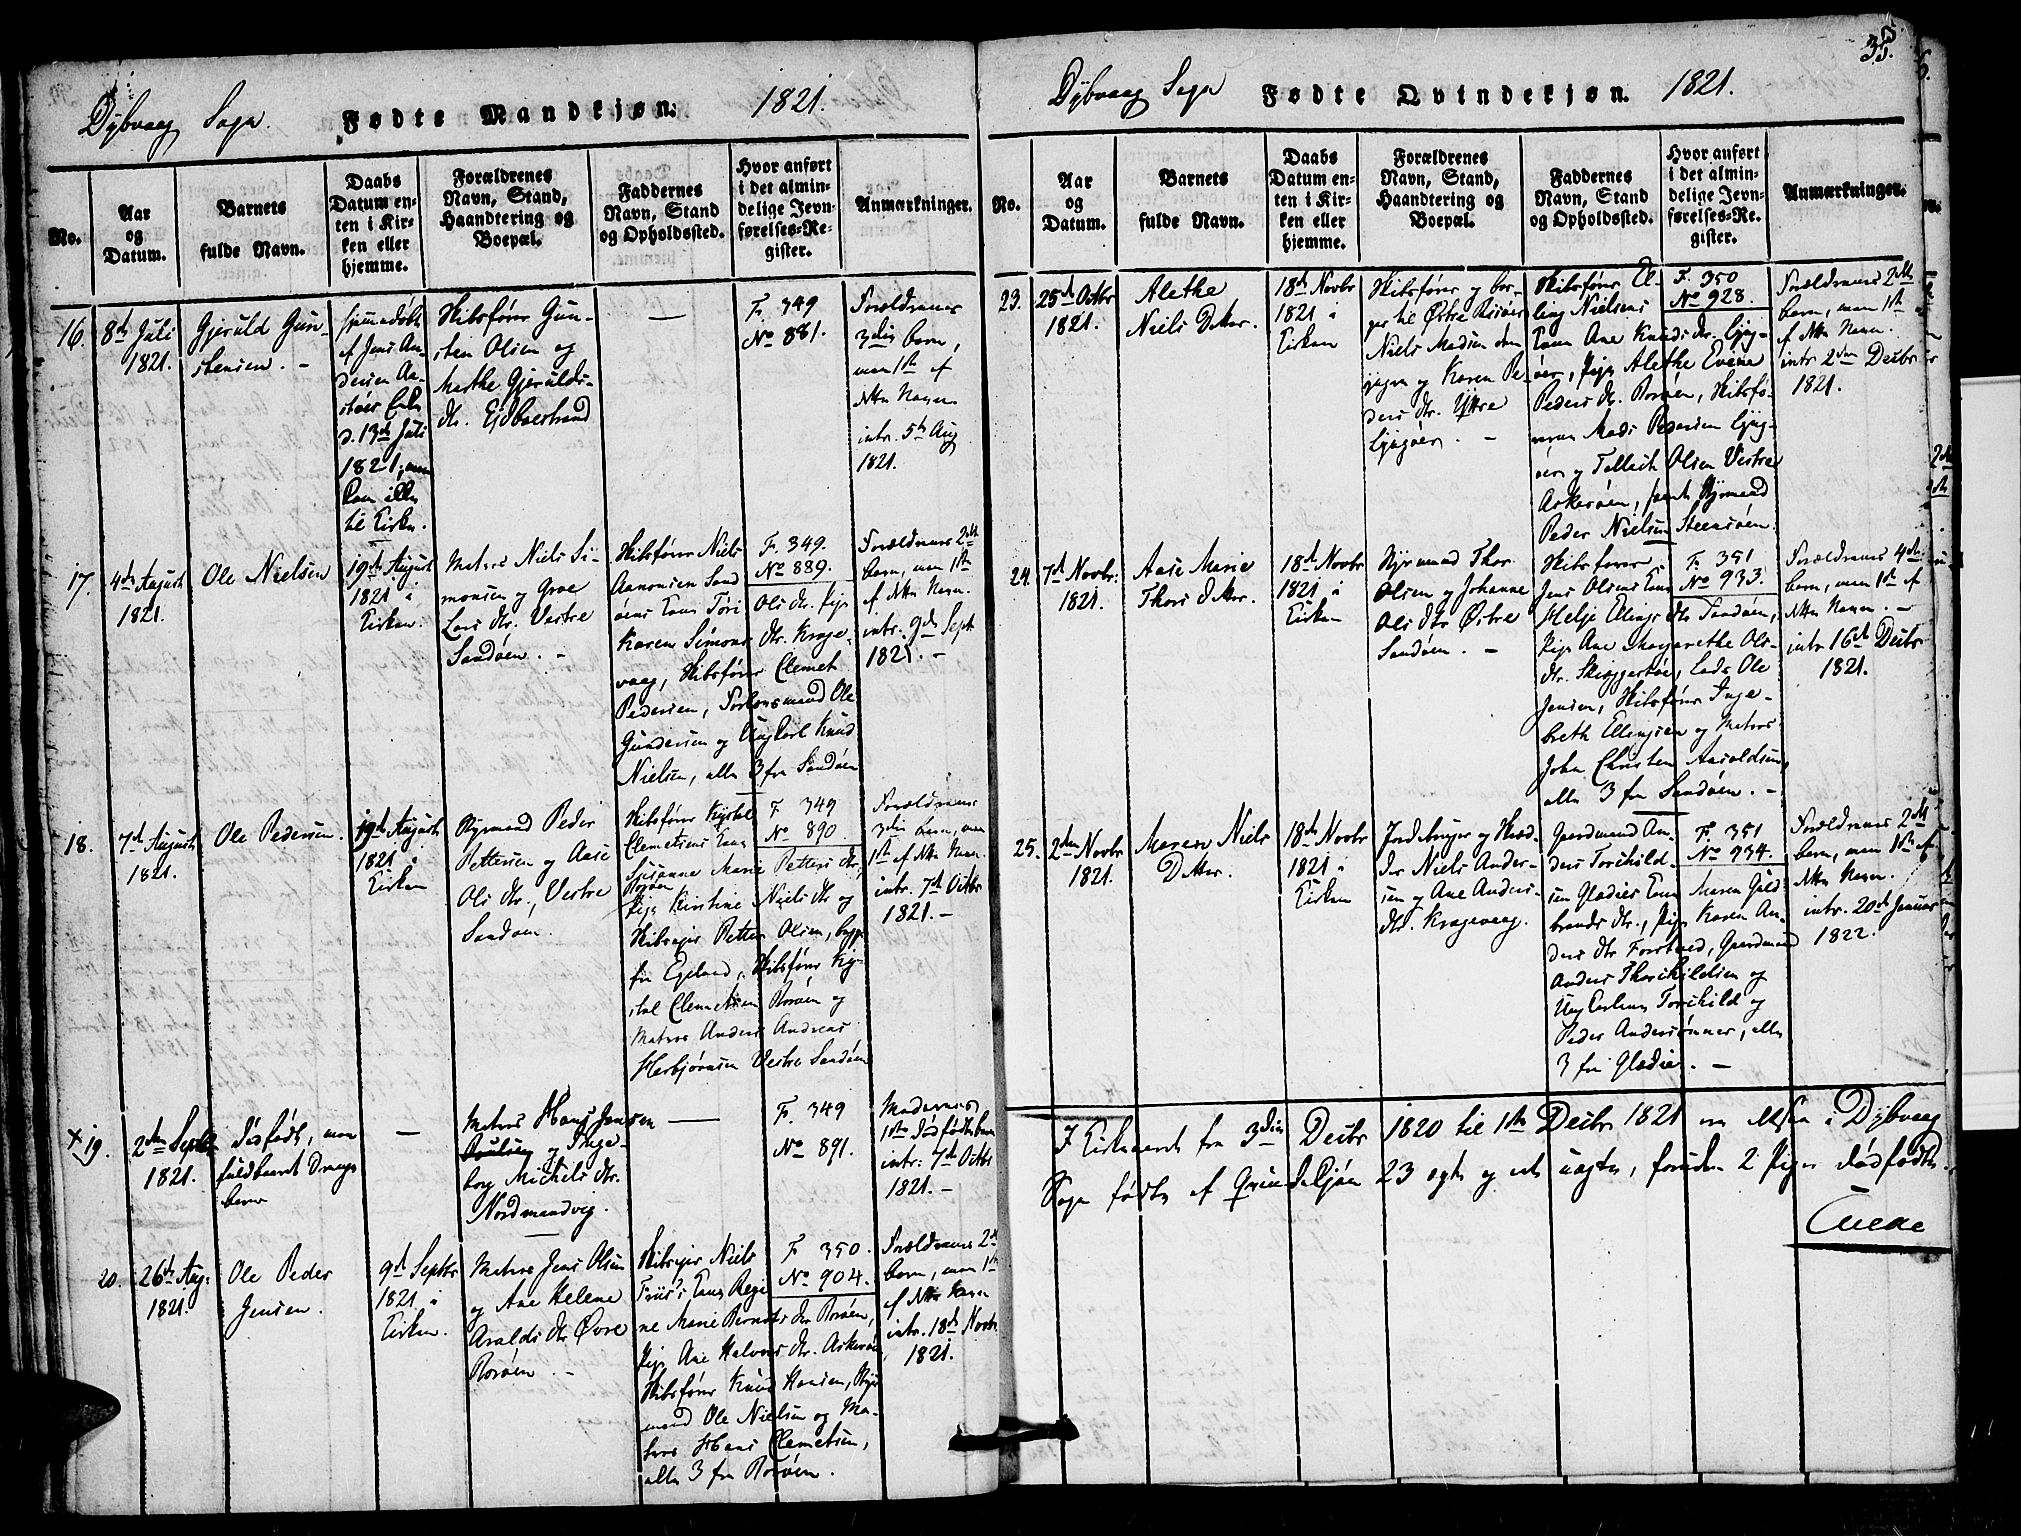 Dybvaag Sogn.
Fødte Mandkjøn.
1821.
No.
Aar
og
Datum.
Barnets
fulde Navn.
Daabs
Datum en-
ten i Kir-
ken eller
hjemme.
Forældrenes
Navn, Stand,
Haandtering og
Boepæl.
Faddernes
Navn, Stand
og Opholdssted.
Hvor anført
i det almin-
delige Jevn-
førelses-Re-
gister.
Anmærkninger.
16.
8de Juli
1821.
Gjeruld Gun-
stensen. -
hjemmedøbt
af Jens An-
dersen
d. 13de Juli
1821, men
kom ikke
til Kirken.
Skibsfører Gun-
sten Olsen og
Marthe Gjerulds-
dtr. Eidboestrand
—
F. 349
No 881.
Forældrenes
3die barn,
men 1ste af
dette Navn
intr. 5te Aug
1821.
17.
4de August
1821.
Ole Nielsen
19de August
1821 i
Kirken.
Matros Niels Si-
monsen og Groe
Lars dtr. Vestre
Sandøen. -
Skibsfører Niels
Aanonsen Sand
øens Kone Tori
Ols dtr. Pige
Karen Simons dtr. Krage-
vaag, Skibsfører Clemet
Pedersen, Ole
Gundersen og Ungkarl Knud
Nielsen, alle 3 fra Sandøen
F. 349.
No 889.
Forældrenes 2det
barn, men 1ste
af dette Navn.
intr. 9de Sept.
1821. -
18.
7de August
1821.
Ole Pedersen.
19de August
1821 i
Kirken
Styrmand Peder
Pettersen og Aase
Ols dtr., Vestre
Sandøen.
Skibsfører Kystel
Clemetsens Kone
Susanne Marie Petters dtr,
Borøen
Pige Kirstine Niels dtr og
Skibsejer Petter Olsen, begge
fra Egeland, Skibsfører Ky-
stel Clemetsen Borøen og
Matros Anders Andreas
Herbjørnsen Vestre Sandøen
F. 349
No 890.
Forældrenes
3die barn, men
1ste af dette Navn.
intr. 7de Octbr
1821. -
x 19.
2den Septbr
1821.
Dødfødt, men
fuldbaaret Drenge
barn
—
Matros Hans Jensen
og Inge-
borg Michels dtr.
Nordmandvig.
—
F. 349
No 891.
Moderens
1ste dødfødte barn
intr: 7de Octbr
1821. -
20.
26de Aug:
1821.
Ole Peder
Jensen.
9de Septbr
1821 i
Kirken.
Matros Jens Olsen
og Ane Helene
Aralds dtr Øvre
Borøen. -
Skibsejer Niels
Friis's Kone Regi
ne Marie Bernts dtr Borøen,
Pige Ane Halvors dtr. Askerøen
Skibsfører Knud Hansen, Styr
mand Ole Nielsen og Ma-
tros Hans Clemetsen,
alle 3 fra Borøen.
F. 350.
No 904.
Forældrenes 2det
barn, men 1ste
af dette Navn
intr. 18de Novbr.
1821.
35.
Dybvaag Sogn
Fødte Qvindekjøn.
1821.
No.
Aar
og
Datum.
Barnets
fulde Navn.
Daabs
Datum en-
ten i Kir-
ken eller
hjemme.
Forældrenes
Navn, Stand,
Haandtering og
Boepæl.
Faddernes
Navn, Stand
og Opholdssted.
Hvor anført
i det almin-
delige Jevn-
førelses-Re-
gister.
Anmærkninger.
23.
25de Octbr
1821.
Alethe
Niels Datter.
18de Novbr
1821 i
Kirken
Skibsfører og bor-
ger til Østre Risøer
Niels Madsen den
yngre og Karen Pe-
ders dtr. Yttre
Lyngøer. -
Skibsfører El-
ling Nielsens
Kone Ane Knuds dtr. Lyng-
øer, Pige Alethe Evene
Peders dtr. Borøen, Skibsfø-
rerne Mads Pedersen Lyng-
øer og Tellech Olsen Vestre
Askerøen, samt Styrmand
Peder Nielsen Steensøen.
F. 350
No 928.
Forældrenes 2det
barn, men 1ste
af dette Navn.
intr 2den Decbr
1821.
24.
7de Novbr:
1821.
Aase Marie
Thors Datter.
18de Novbr
1821 i
Kirken
Styrmand Thor
Olsen og Johanne
Ols dtr Østre
Sandøen. -
Skibsfører
Jens Olsens Kone
Helje Ellings dtr Sandøen,
Pige Ane Margarethe Ols-
dtr. Skjeggestøe, Lods Ole
Jensen, Skibsfører Inge-
breth Ellingsen og Matros
John Christen Aaroldsen,
alle 3 fra Sandøen. -
F. 351
No 933.
Forældrenes 4de
barn, men 1ste af
dette Navn. -
intr 16de Decbr
1821.
25.
2den Novbr
1821.
Maren Niels
Datter.
18de Novbr
1821 i
Kirken
Jordbruger og Skræd-
der Niels Ander-
sen og Ane Anders-
dtr. Kragevaag.
Gaardmand An-
ders Torchild-
sen Gladiers Kone Maren Guld-
brands dtr., Pige Karen An-
ders dtr Forstved, Gaardmand
Anders Thorchildsen og
Ungkarlene Torchild og
Peder Anderssønner, alle
3 fra Gladier. -
F. 351
No 934.
Forældrenes 2det
barn, men 1ste af
dette Navn.
intr. 20de Januar
1822.
I Kirkeaaret fra 3die Decbr 1820 til 1ste Decbr 1821 ere altsaa i Dybvaag
Sogn fødte af Qvindekjøn 23 ægte og et uægte, foruden 2 Piger dødfødte.